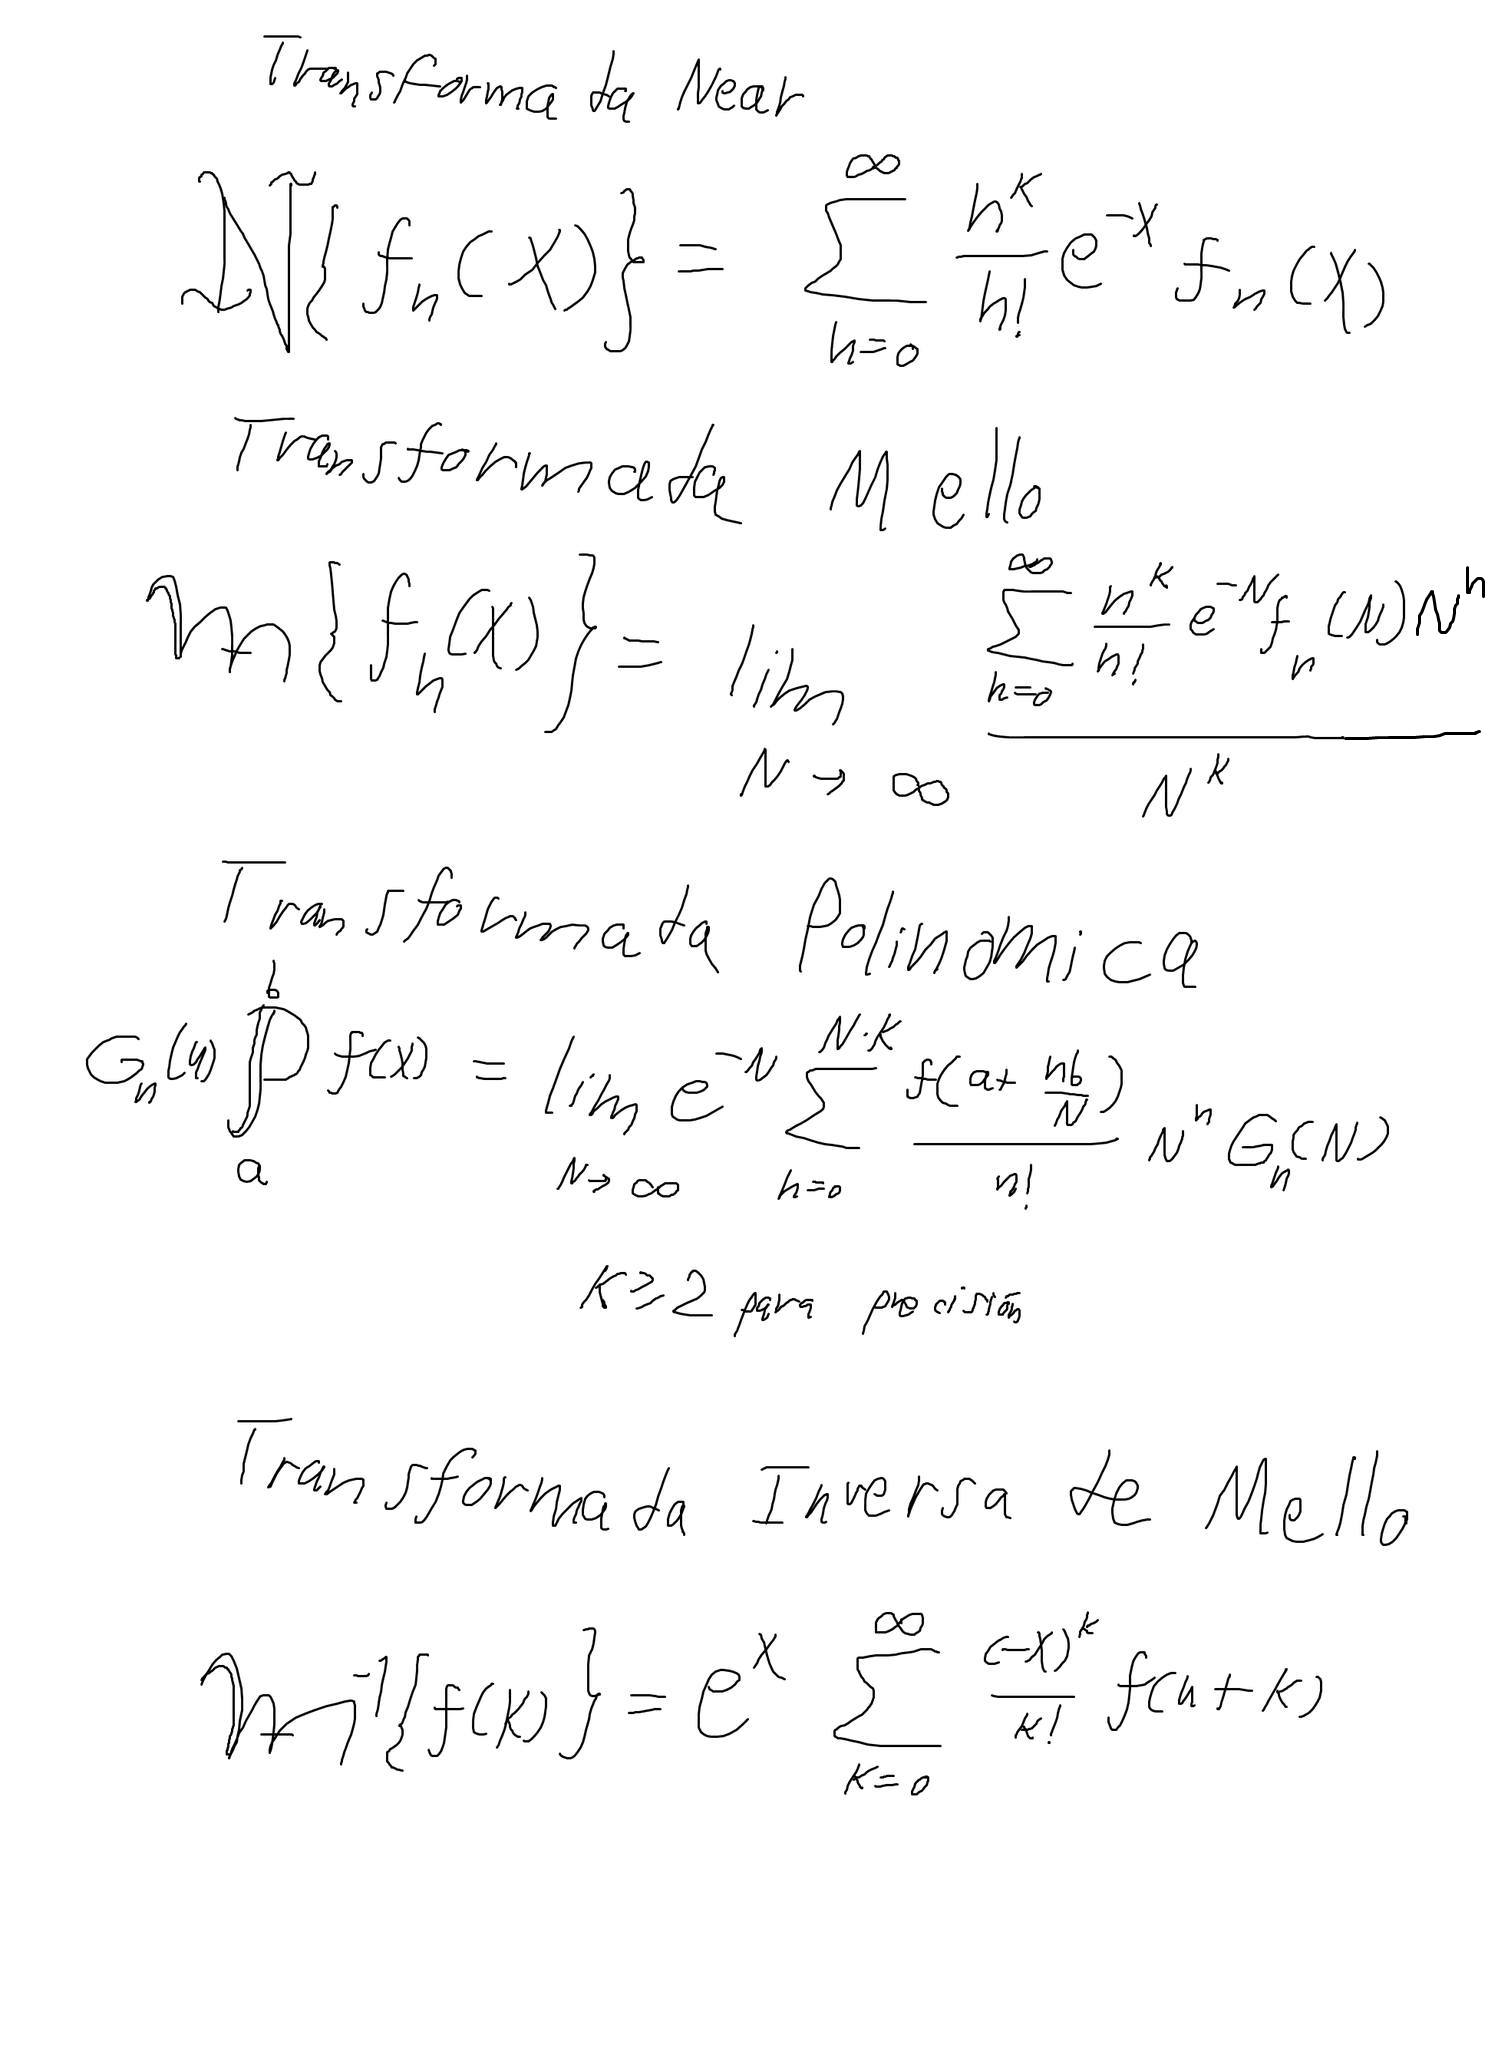 Transformada Near
N{fn(x)} = ∑_{n=0}^{∞} n^k/n! e^{-x} fn(x)
Transformada Mello
m{fn(x)} = lim_{N→∞} (∑_{n=0}^{∞} n^k/n! e^{-N} fn(N) N^n) / N^k
Transformada Polinomica
Gn(u) ∫P_a^b f(x) = lim_{N→∞} e^{-N} ∑_{n=0}^{N·K} f(a + nb/N)/n! N^n Gn(N)
K ≥ 2 para precisión
Transformada Inversa de Mello
m^{-1}{f(k)} = e^x ∑_{k=0}^{∞} (-x)^k/k! f(n+k)